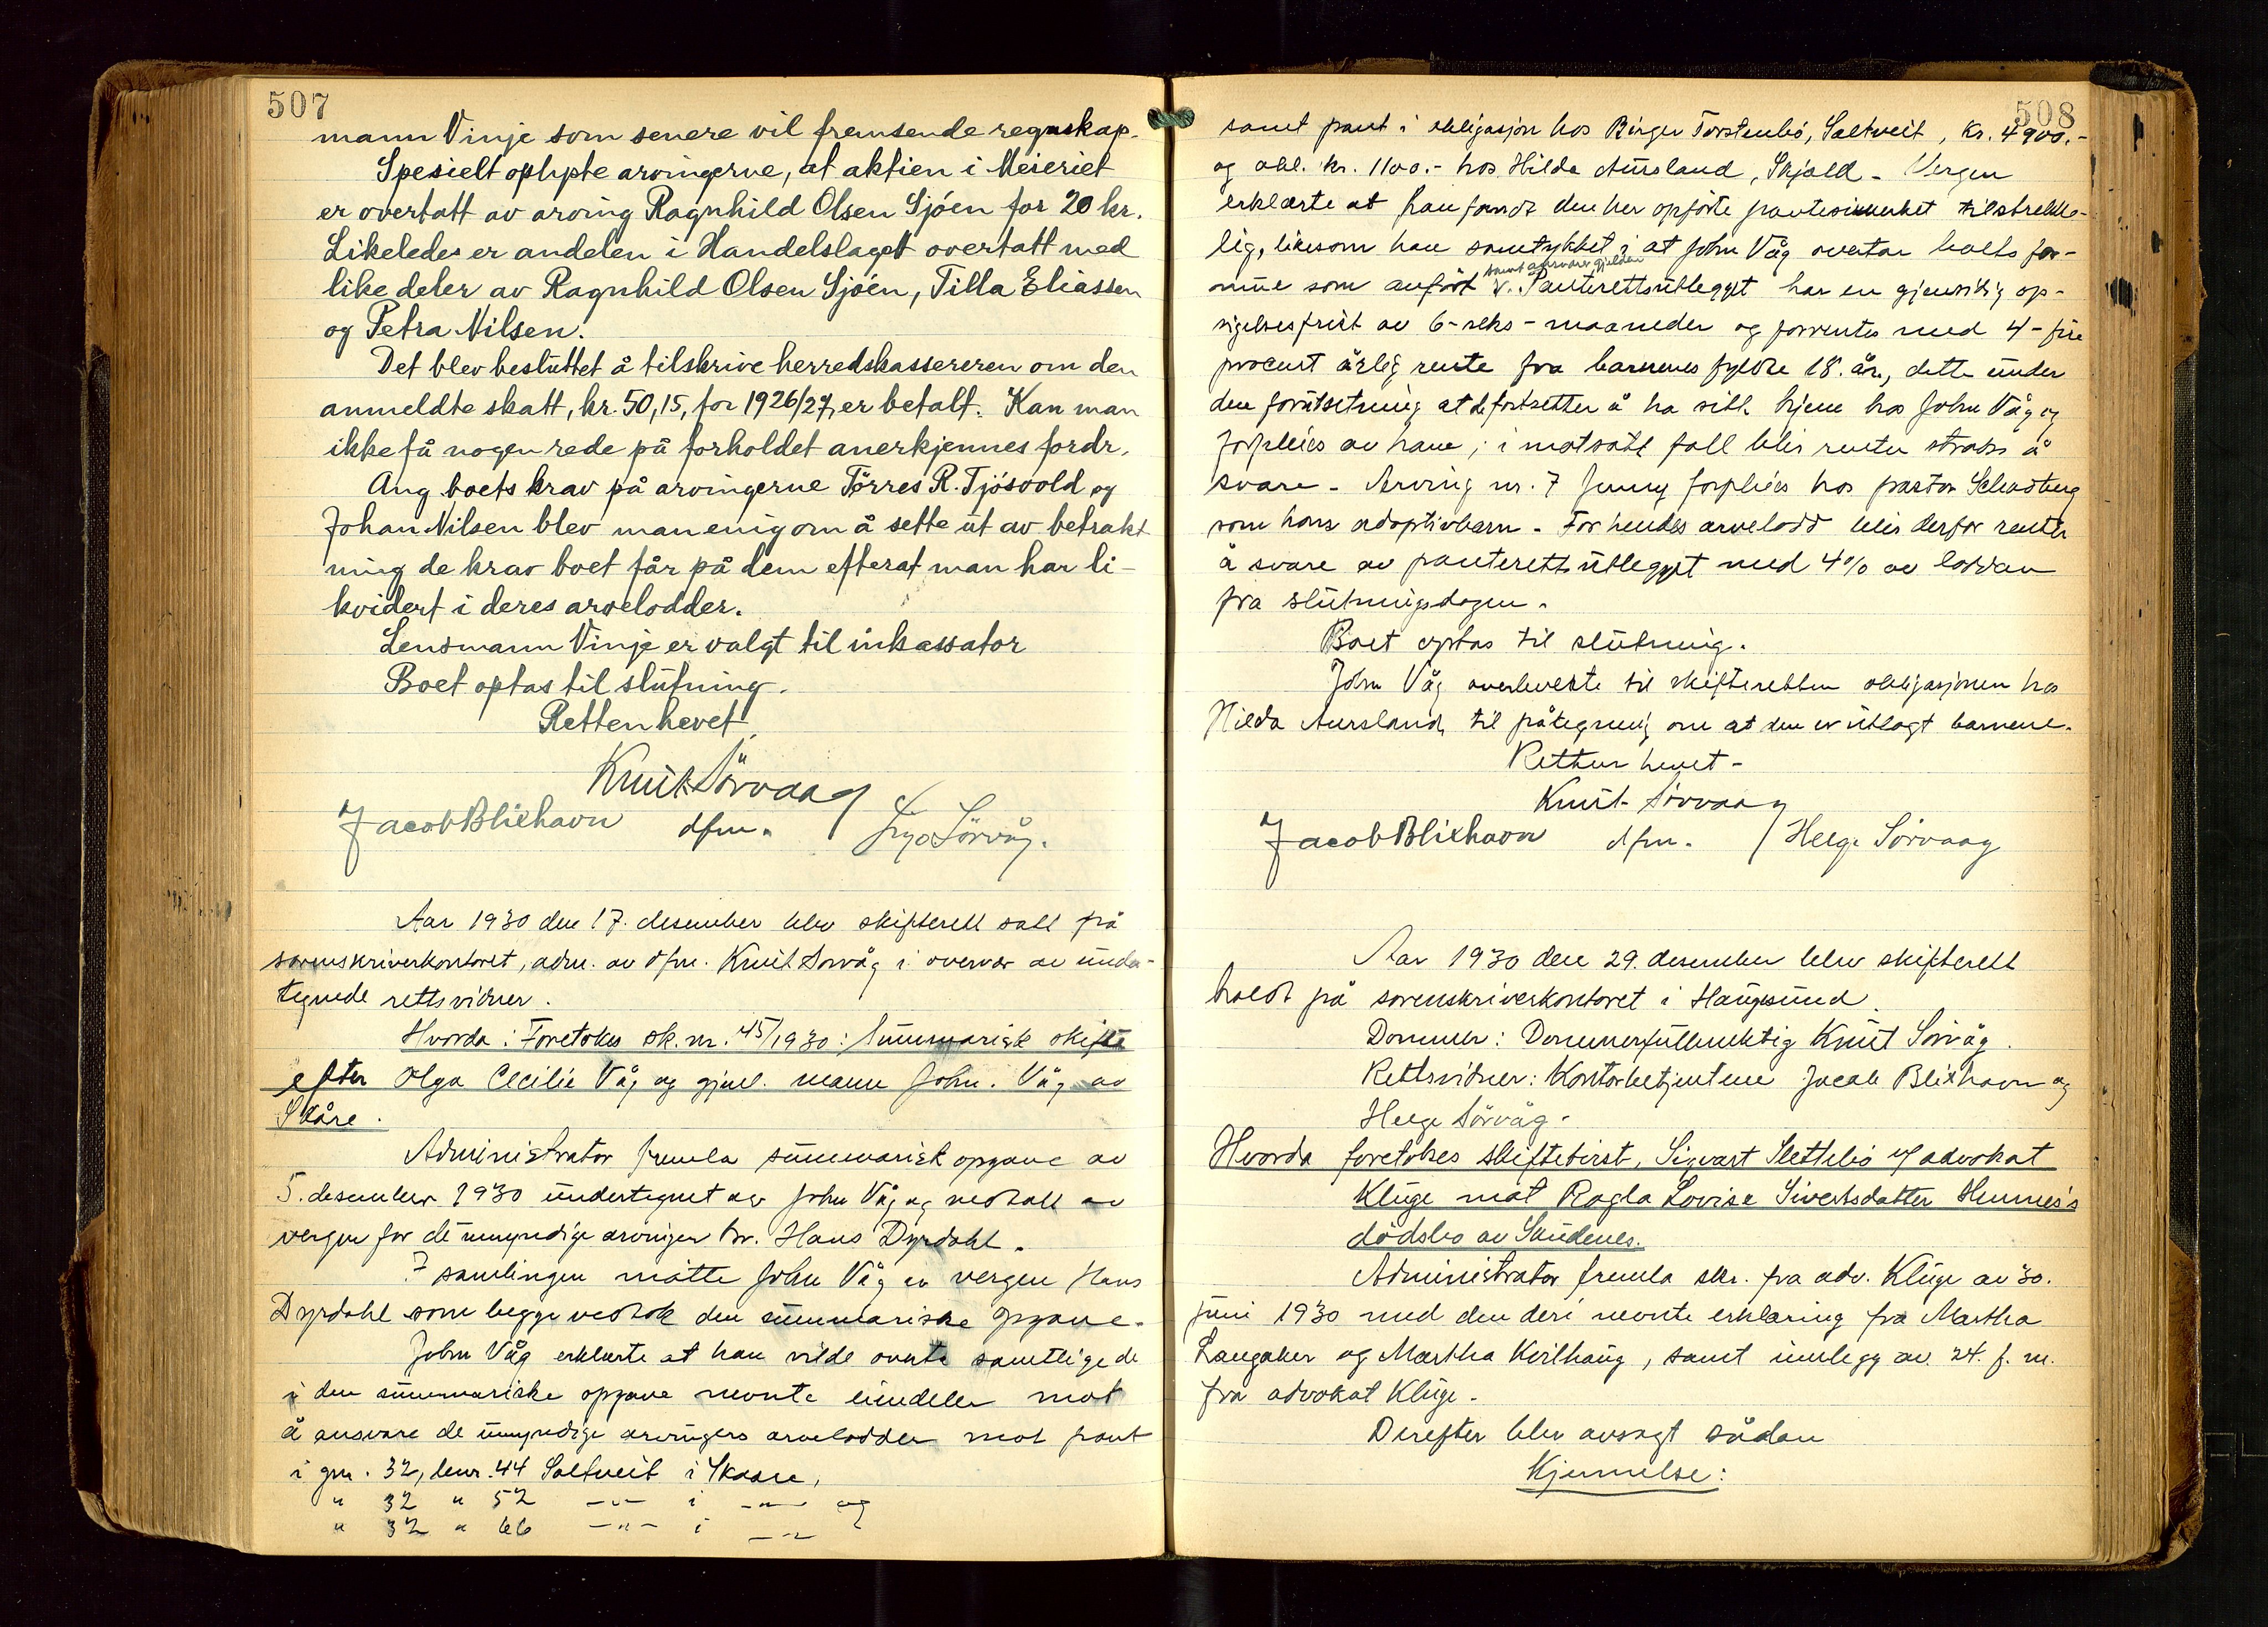 507
mann Vinje som senere vil fremsende regnskap.
Spesielt oplyste arvingerne, at aktien i Meieriet
er overtatt av arving Ragnhild Olsen Sjöen for 20 kr.
Likeledes er andelen i Handelslaget overtatt med
like deler av Ragnhild Olsen Sjöen, Tilla Eliassen
og Petra Nilsen.
Det blev besluttet å tilskrive herredskassereren om den
anmeldte skatt, kr. 50,15, for 1926/27, er betalt. Kan man
ikke få nogen rede på forholdet anerkjennes fordr.
Ang boets krav på arvingerne Törres R. Tjösvold og
Johan Nilsen blev man enig om å sette ut av betrakt
ning de krav boet får på dem efterat man har li-
kvidert i deres arvelodder.
Lensmann Vinje er valgt til inkassator
Boet optas til slutning.
Retten hevet.
Knut Sörvaag
Jacob Blixhavn dfm. Sörvåg.
Aar 1930 den 17. desember blev skifterett satt på
sorenskriverkontoret, adm. av dfm. Knut Sorvåg i overvær av under-
tegnede rettsvidner.
Hvorda: Foretokes sk. nr. 45/1930: Summarisk skifte
efter Olga Cecilie Våg og gjenl. mann John. Våg av
Skåre.
Administrator fremla summarisk opgave av
5. desember 1930 undertegnet av John Våg og vedtatt av
vergen for de umyndige arvinger hr. Hans Dyrdahl.
I samlingen møtte John Våg og vergen Hans
Dyrdahl som begge vedtok den summariske opgave.
John Våg erklærte at han vilde overta samtlige de
i den summariske opgave nevnte eiendeler mot
å ansvare de umyndige arvingers arvelodder mot pant
i gnr. 32, bnr. 44 Saltveit i Skaare,
" 32 " 52 -"- i -"- og
" 32 " 66 -"- i -"-
508
samt pant i obligasjon hos Birger Torstenbö, Saltveit, kr. 4900.-
og obl. kr. 1100.- hos Hilda Aursland, Skjold. - Vergen
erklærte at han fandt den her opførte pantesikkerhet tilstrekke-
lig, likesom han samtykket i at John Våg overtar boets for-
samt ansvarer gjelden
mue som anført v. Panterettsutlegget har en gjensidig op-
sigelsesfrist av 6-seks-maaneder og forrentes med 4-fire
procent årlig rente fra barnenes fyldte 18. år, dette under
den forutsetning at de fortsetter å ha sitt hjem hos John Våg og
forpleies av ham; i motsatt fall blir renter straks å
svare. - Arving nr. 7 Jenny forpleies hos pastor
som hans adoptivbarn. - For hendes arvelodd blir derfor renter
å svare av panterettsutlegget med 4% av lodden
fra slutningsdagen.
Boet optas til slutning.
John Våg overleverte til skifteretten obligasjonen hos
Hilda Aursland, til påtegning om at den er utlagt barnene.
Retten hevet -
Knut Sörvaag
Jacob Blixhavn dfm. / Helge Sörvaag
Aar 1930 den 29. desember blev skifterett
holdt på sorenskriverkontoret i Haugesund.
Dommer: Dommerfullmektig Knut Sörvåg.
Rettsvidner: Kontorbetjentene Jacob Blixhavn og
Helge Sörvåg.
Hvorda foretokes skiftetvist, Sigvart Slettebö v/ advokat
Kluge mot Ragla Lovise Sivertsdatter Hemnes's
dödsbo av Skudenes.
Administrator fremla skr. fra adv. Kluge av 30.
juni 1930 med den deri nevnte erklæring fra Martha
Langaker og Martha Kvilhaug, samt innlegg av 24. f. m.
fra advokat Kluge.
Derefter blev avsagt sådan
Kjennelse: